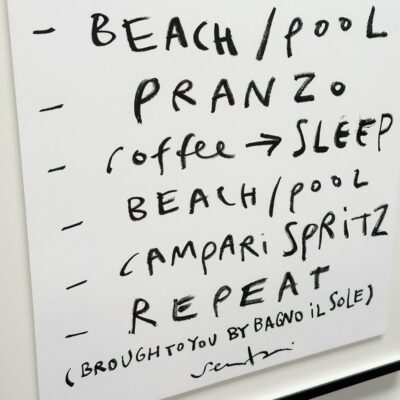 - BEACH/POOL
- PRANZO
- coffee → SLEEP
- BEACH/POOL
- CAMPARi SPRiTZ
- REPEAT
(BROUGHT TO YOU BY BAGNO iL SOLE)